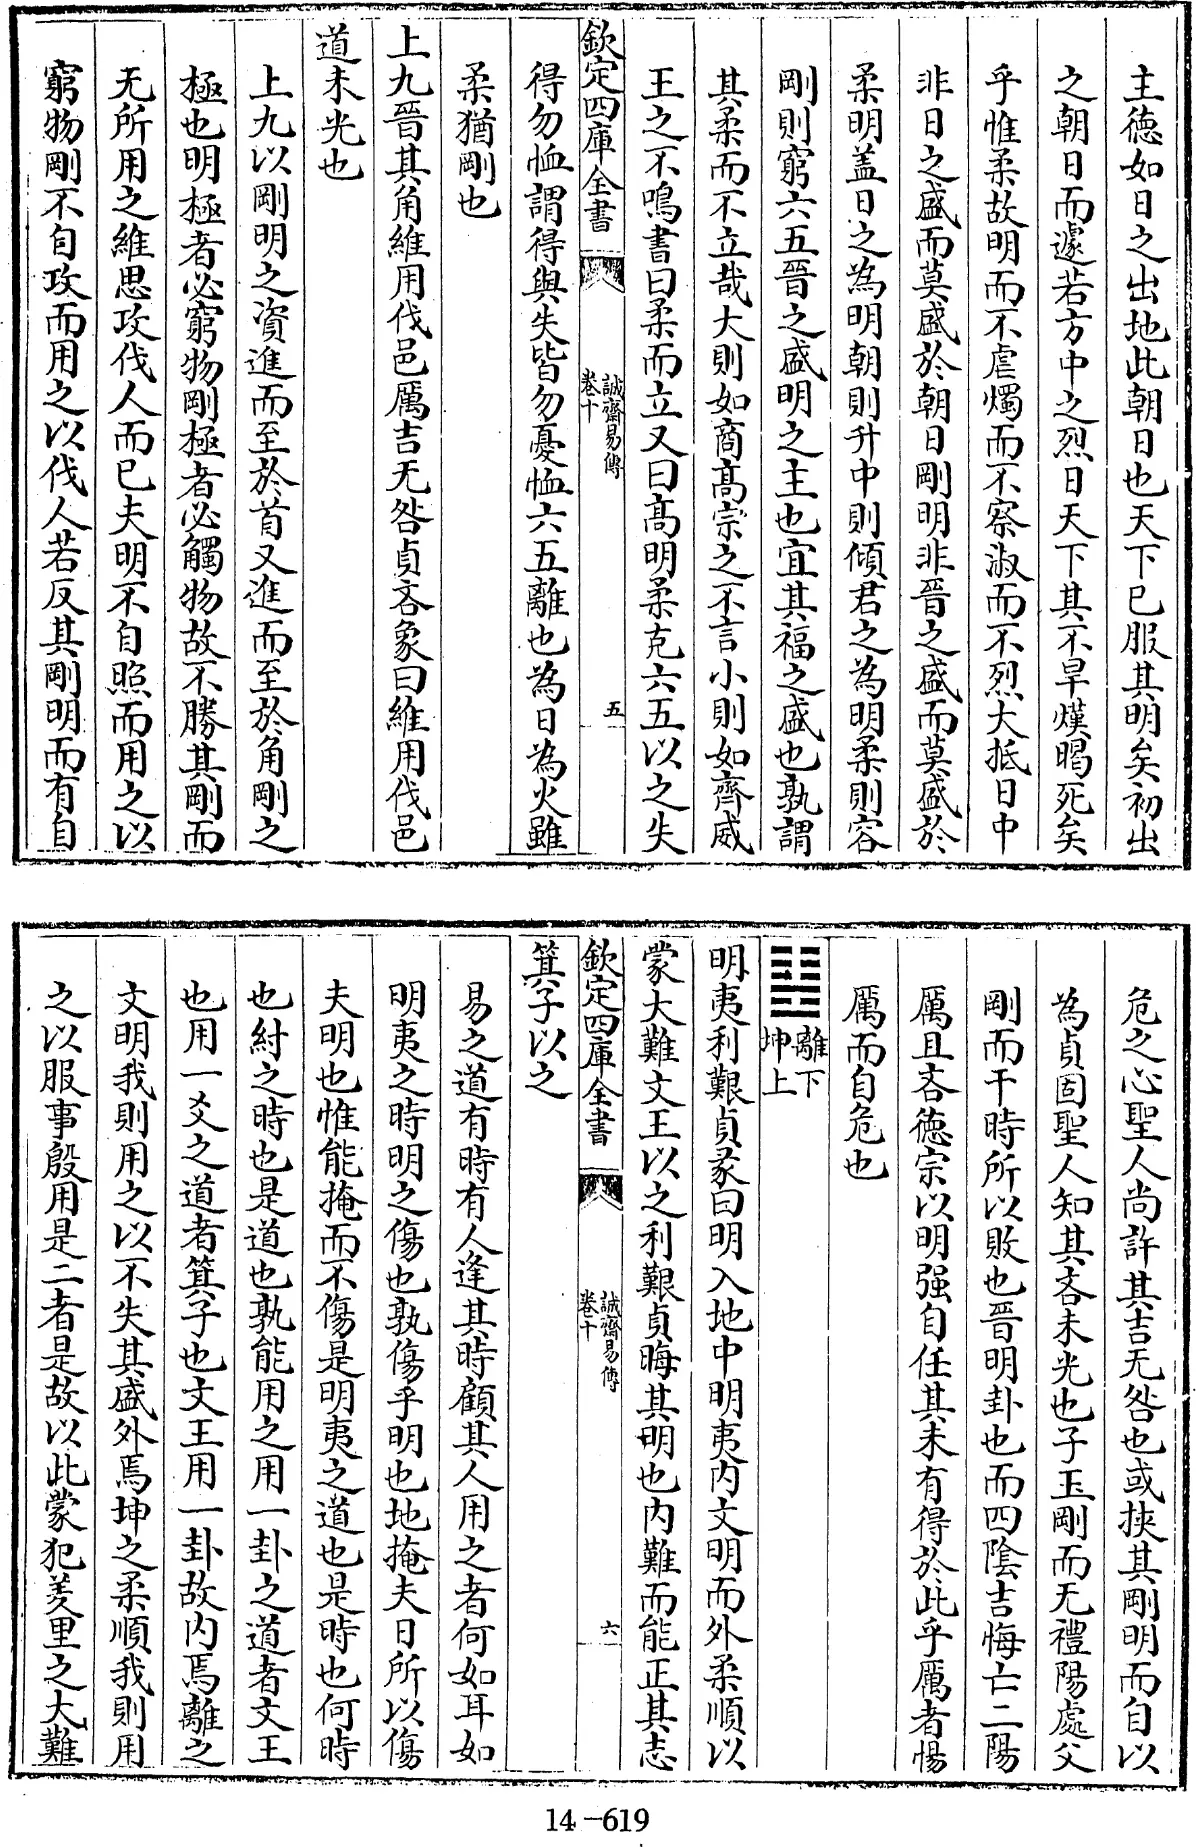 主徳如日之出地此朝日也天下已服其明矣初出
之朝日而遽若方中之烈日天下其不旱熯暍死矣
乎惟柔故明而不虐燭而不察淑而不烈大抵日中
非日之盛而莫盛於朝日剛明非晉之盛而莫盛於
柔明盖日之為明朝則升中則傾君之為明柔則容
剛則窮六五晉之盛明之主也宜其福之盛也孰謂
其柔而不立哉大則如商髙宗之不言小則如齊威
王之不鳴書曰柔而立又曰髙明柔克六五以之失
欽定四庫全書
誠齋易傳
卷十
五
得勿恤謂得與失皆勿憂恤六五離也為日為火雖
柔猶剛也
上九晉其角維用伐邑厲吉无咎貞吝象曰維用伐邑
道未光也
上九以剛明之資進而至於首又進而至於角剛之
極也明極者必窮物剛極者必觸物故不勝其剛而
无所用之維思攻伐人而已夫明不自照而用之以
窮物剛不自攻而用之以伐人若反其剛明而有自
危之心聖人尚許其吉无咎也或挾其剛明而自以
為貞固聖人知其吝未光也子玉剛而无禮陽處父
剛而干時所以敗也晉明卦也而四陰吉悔亡二陽
厲且吝徳宗以明强自任其未有得於此乎厲者惕
厲而自危也
離下
坤上
明夷利艱貞彖曰明入地中明夷内文明而外柔順以
蒙大難文王以之利艱貞晦其明也内難而能正其志
欽定四庫全書
誠齋易傳
卷十
六
箕子以之
易之道有時有人逢其時顧其人用之者何如耳如
明夷之時明之傷也孰傷乎明也地掩夫日所以傷
夫明也惟能掩而不傷是明夷之道也是時也何時
也紂之時也是道也孰能用之用一卦之道者文王
也用一爻之道者箕子也文王用一卦故内焉離之
文明我則用之以不失其盛外焉坤之柔順我則用
之以服事殷用是二者是故以此蒙犯羑里之大難
14-619